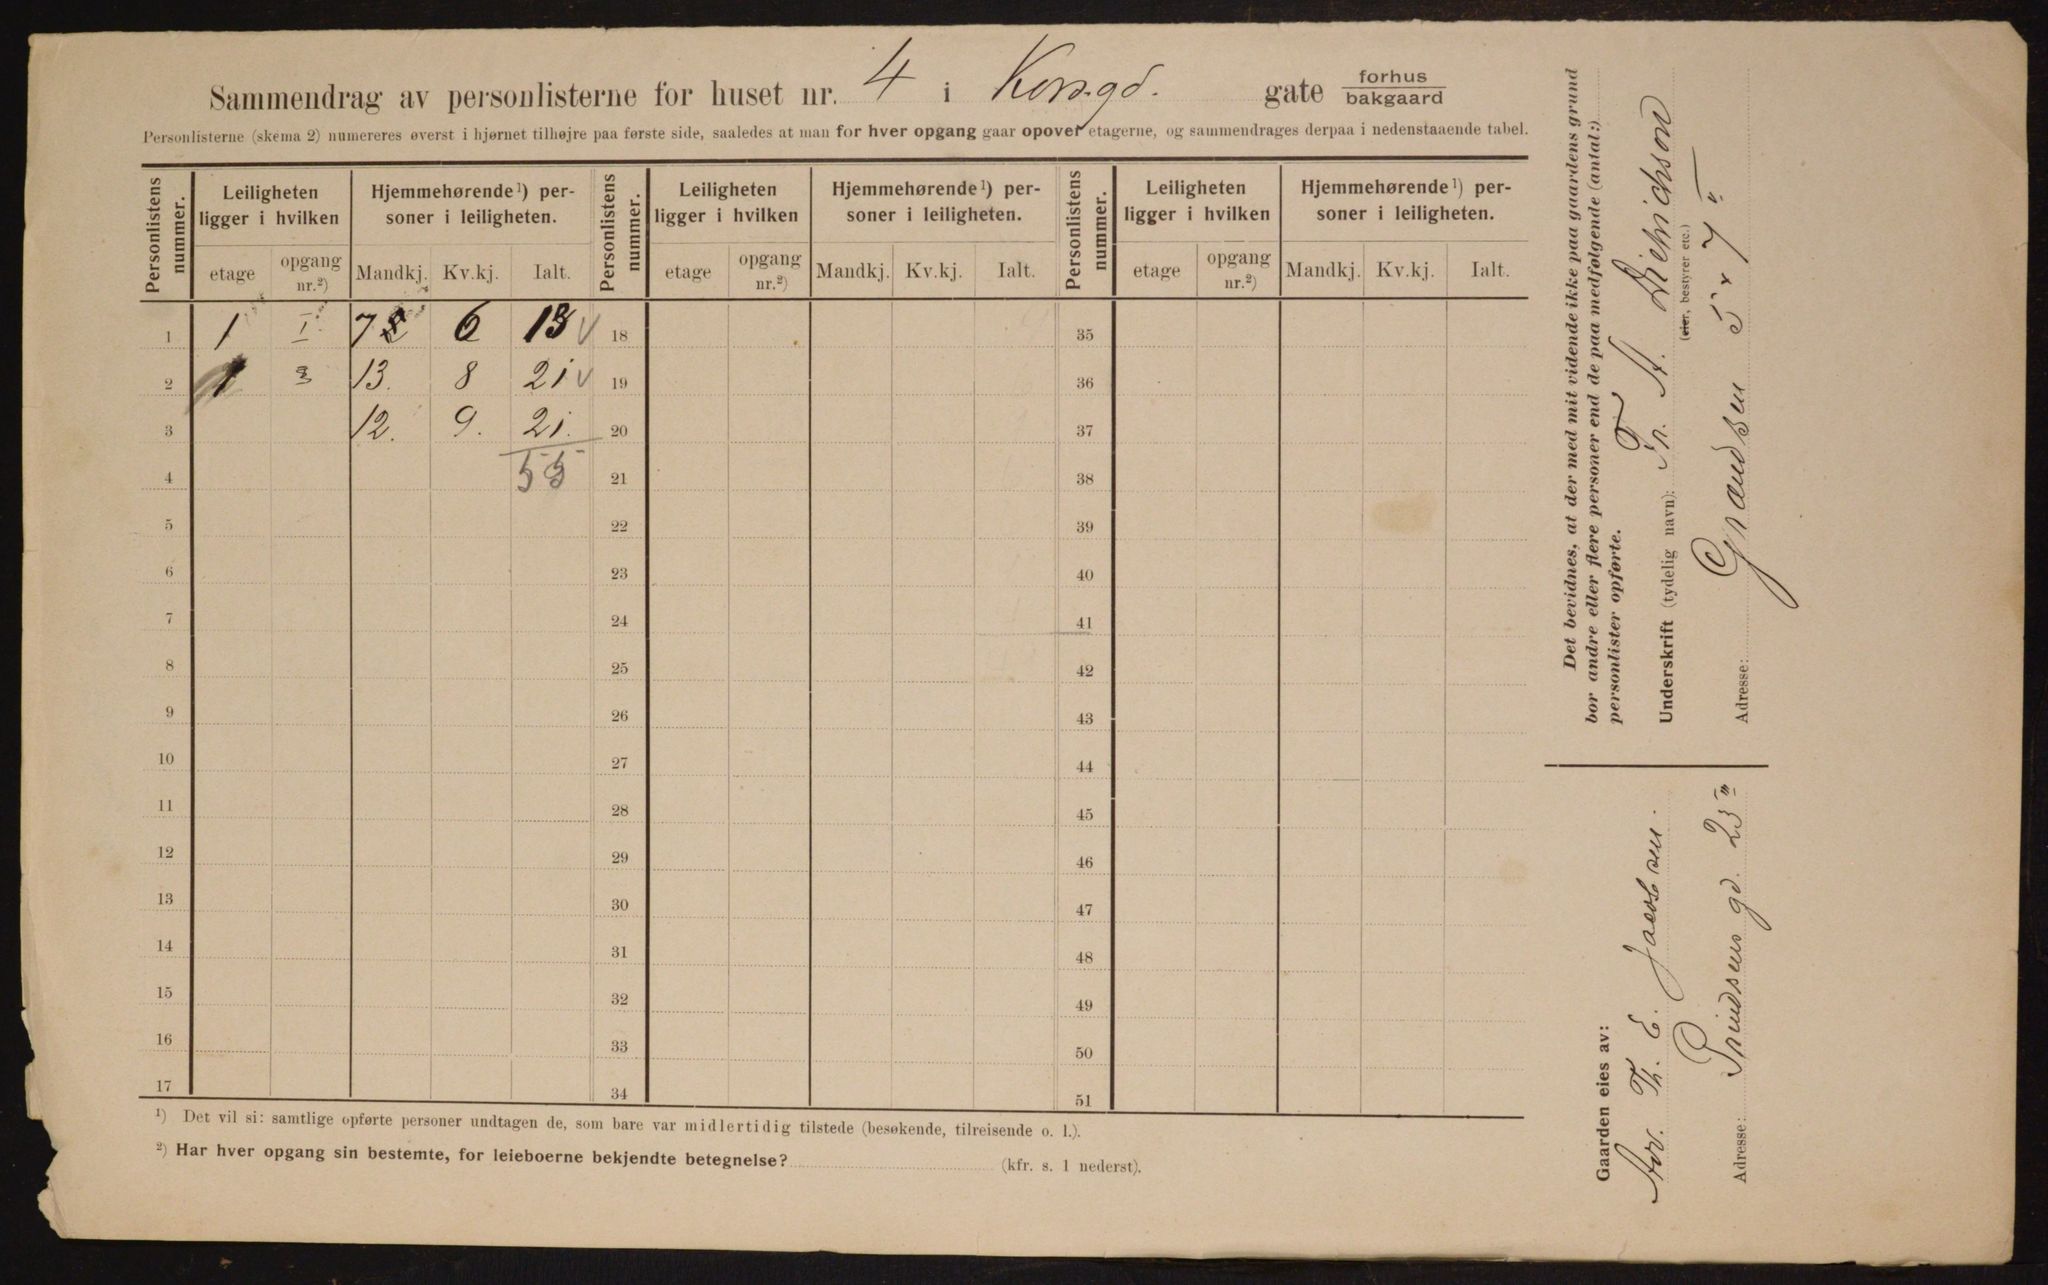 Sammendrag av personlisterne for huset nr. 4 i Korsgd. gate forhus bakgaard
Personlisterne (skema 2) numereres øverst i hjørnet tilhøjre paa første side, saaledes at man for hver opgang gaar opover etagerne, og sammendrages derpaa i nedenstaaende tabel.
Personlistens nummer. Leiligheten ligger i hvilken Hjemmehørende¹) personer i leiligheten. Personlistens nummer. Leiligheten ligger i hvilken Hjemmehørende¹) personer i leiligheten. Personlistens nummer. Leiligheten ligger i hvilken Hjemmehørende¹) personer i leiligheten.
etage opgang nr.²) Mandkj. Kv.kj. Ialt. etage opgang nr.²) Mandkj. Kv.kj. Ialt. etage opgang nr.²) Mandkj. Kv.kj. Ialt.
1 1 I 7 6 13 18 35
2 1 13. 8 21 19 36
3 12. 9. 21. 20 37
4 55 21 38
5 22 39
6 23 40
7 24 41
8 25 42
9 26 43
10 27 44
11 28 45
12 29 46
13 30 47
14 31 48
15 32 49
16 33 50
17 34 51
¹) Det vil si: samtlige opførte personer undtagen de, som bare var midlertidig tilstede (besøkende, tilreisende o. l.).
²) Har hver opgang sin bestemte, for leieboerne bekjendte betegnelse? (kfr. s. 1 nederst).
Det bevidnes, at der med mit vidende ikke paa gaardens grund
bor andre eller flere personer end de paa medfølgende (antal:)
personlister opførte.
Underskrift (tydelig navn): Fr. A. Dietrichson
(eier, bestyrer etc.)
Adresse: Grændsen 5 & 7 II
Gaarden eies av:
Adv. Th. E. Jacobsen.
Adresse: Prindsens gd. 23 III